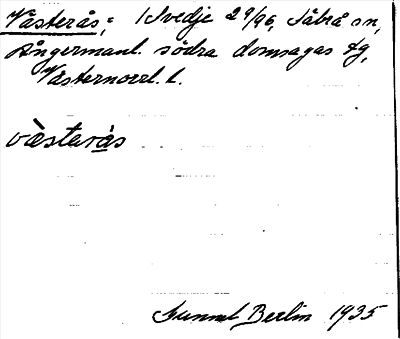 Västerås,: 1 Svedje 2 9/96, Säbrå sn,
Ångermanl. södra domsagas tg,
Västernorrl. l.
västerås
Gunnel Berlin 1935